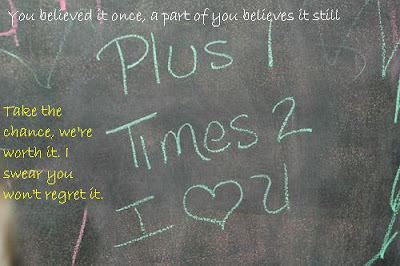 You believed it once, a part of you believes it still
Plus 1
Times 2
I ♡ U
Take the
chance, we're
worth it. I
swear you
won't regret it.